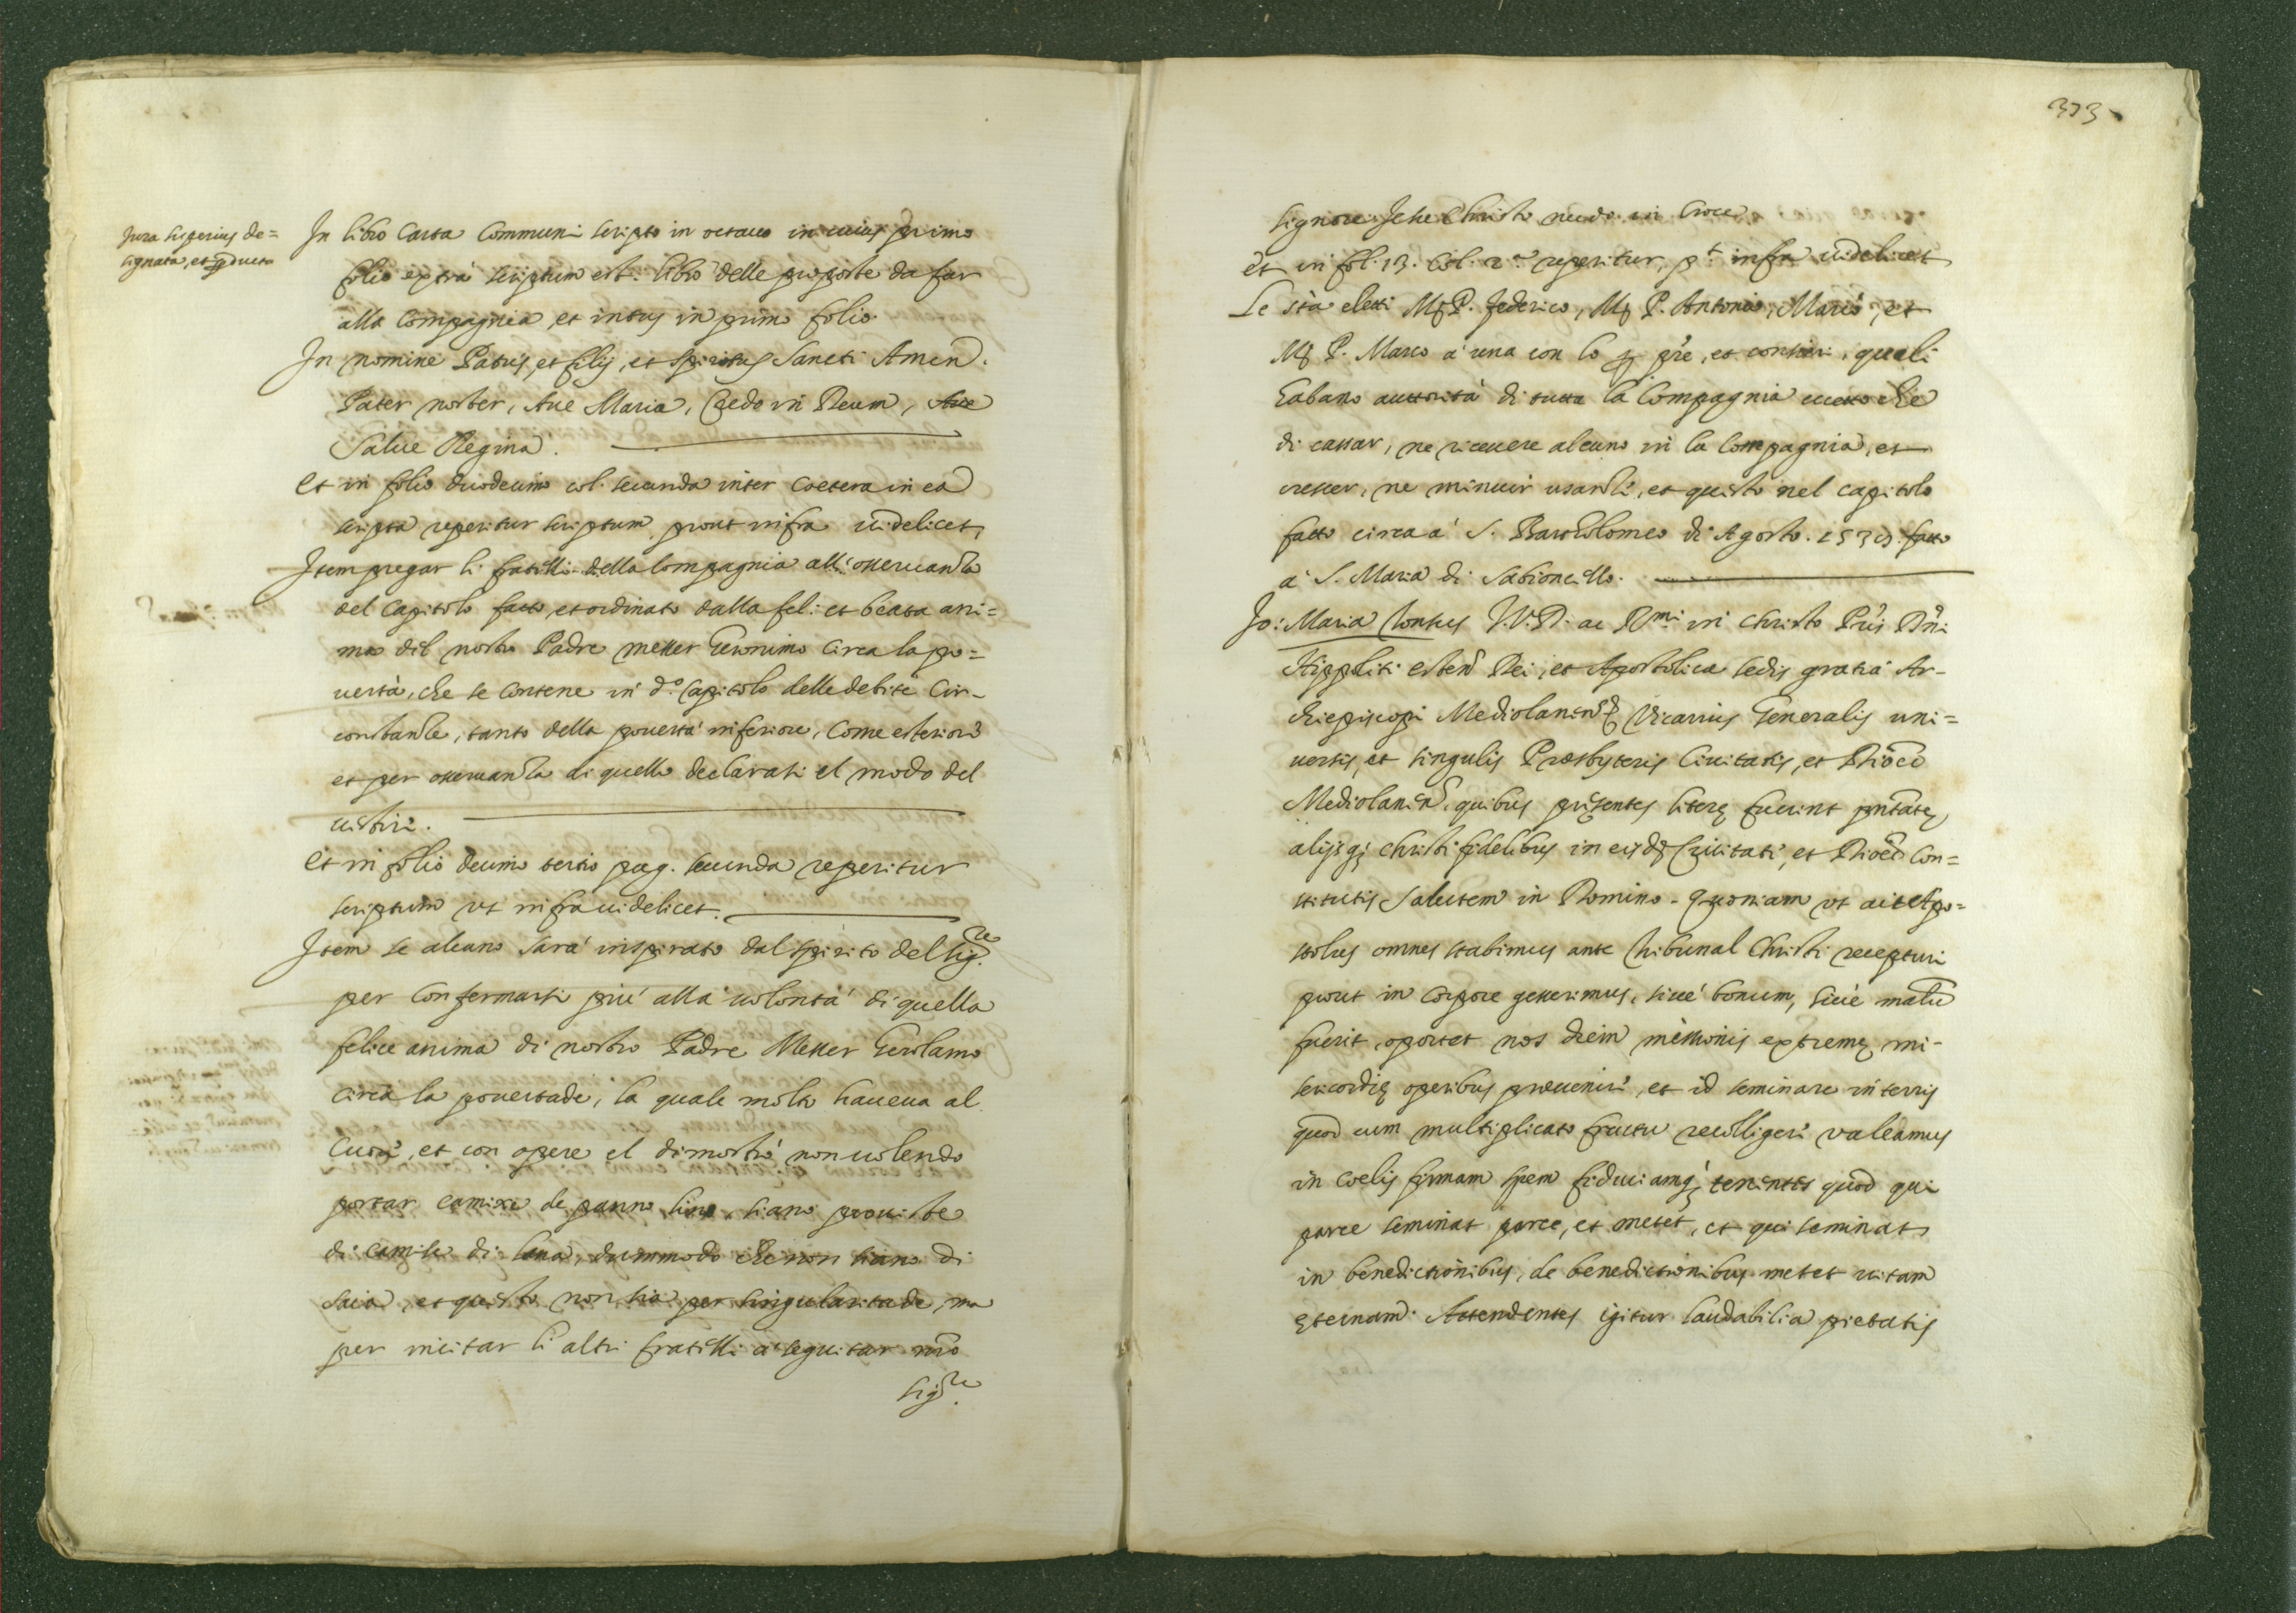 Jura superius de=
signata, et producta
In libro Carta Communi scripto in octavo in cuius primo
folio extrà scriptum est: libro delle proposte da far
alla Compagnia et intus in primo folio
In nomine Patris, et filij, et Spiritus Sancti Amen.
Pater noster, Ave Maria, Credo in Deum, Ave
Salve Regina.
Et in folio duodecimo col. secunda inter coetera in ea
scripta reperitur scriptum, prout infra videlicet,
Item pregar li fratelli della Compagnia all'osservanza
del Capitolo fatto, et ordinato dalla feli: et beata ani=
ma dil nostro Padre messer Geronimo circa la po=
vertà, che se contene in d.º Capitolo delle debite Cir-
constanze, tanto della povertà inferiore, come esteriore
et per osservanza di quello declarati el modo del
vestire.
Et in folio decimo tertio pag. secunda reperitur
scriptum ut infra videlicet.
Item se alcuno sarà inspirato dal spirito del Sig.re
per confermarsi più alla volontà di quella
felice anima di nostro Padre Messer Gerolamo
circa la povertade, la quale molto haveva al
cuore, et con opere el dimostrò non volendo
portar camise de panno lino, siano proviste
di camise di lana, dummodo che non siano di
saia, et questo non sia per singularitade, ma
per incitar li altri fratelli a seguitar nro
Sig.re
373
Signore Jesu Christo nudo in Croce
et in fol. 13. Col. 2.a reperitur, p.t infra videlicet
Se sia eletti M. P. Federico, M. P. Antonio, Mario, et
M. P. Marco a una con lo pre, et consier, quali
habano auttorità di tutta la Compagnia eccetto che
di cassar, ne ricevere alcuno in la Compagnia, et
cresser, ne minuir usanze, et questo nel capitolo
fatto circa a S. Bartholomeo di Agosto. 1539. fatto
a S. Maria di Sabioncello.
Jo: Maria Tonsus J. V. D. ac R.mi in Christo Pris Dni
Hippoliti esten Dei, et Apostolica sedis gratia Ar-
chiepiscopi Mediolanen Vicarius Generalis uni=
versis, et singulis Presbyteris Civitatis, et Dioec
Mediolanen, quibus presentes litere fuerint pntate,
alijsq; christi fidelibus in eisd Civitati, et Dioec con=
stitutis Salutem in Domino. Quoniam ut ait Apo=
stolus omnes stabimus ante tribunal Christi recepturi
prout in corpore gesserimus, sive bonum, sive malu
fuerit, oportet nos diem messionis extreme mi-
sericordie operibus prevenire, et id seminare in terris
quod cum multiplicato fructu recolligere valeamus
in coelis firmam spem fiduciamq; tenentes quod qui
parce seminat parce, et metet, et qui seminat
in benedictionibus, de benedictionibus metet vitam
eternam. Attendentes igitur laudabilia pietatis